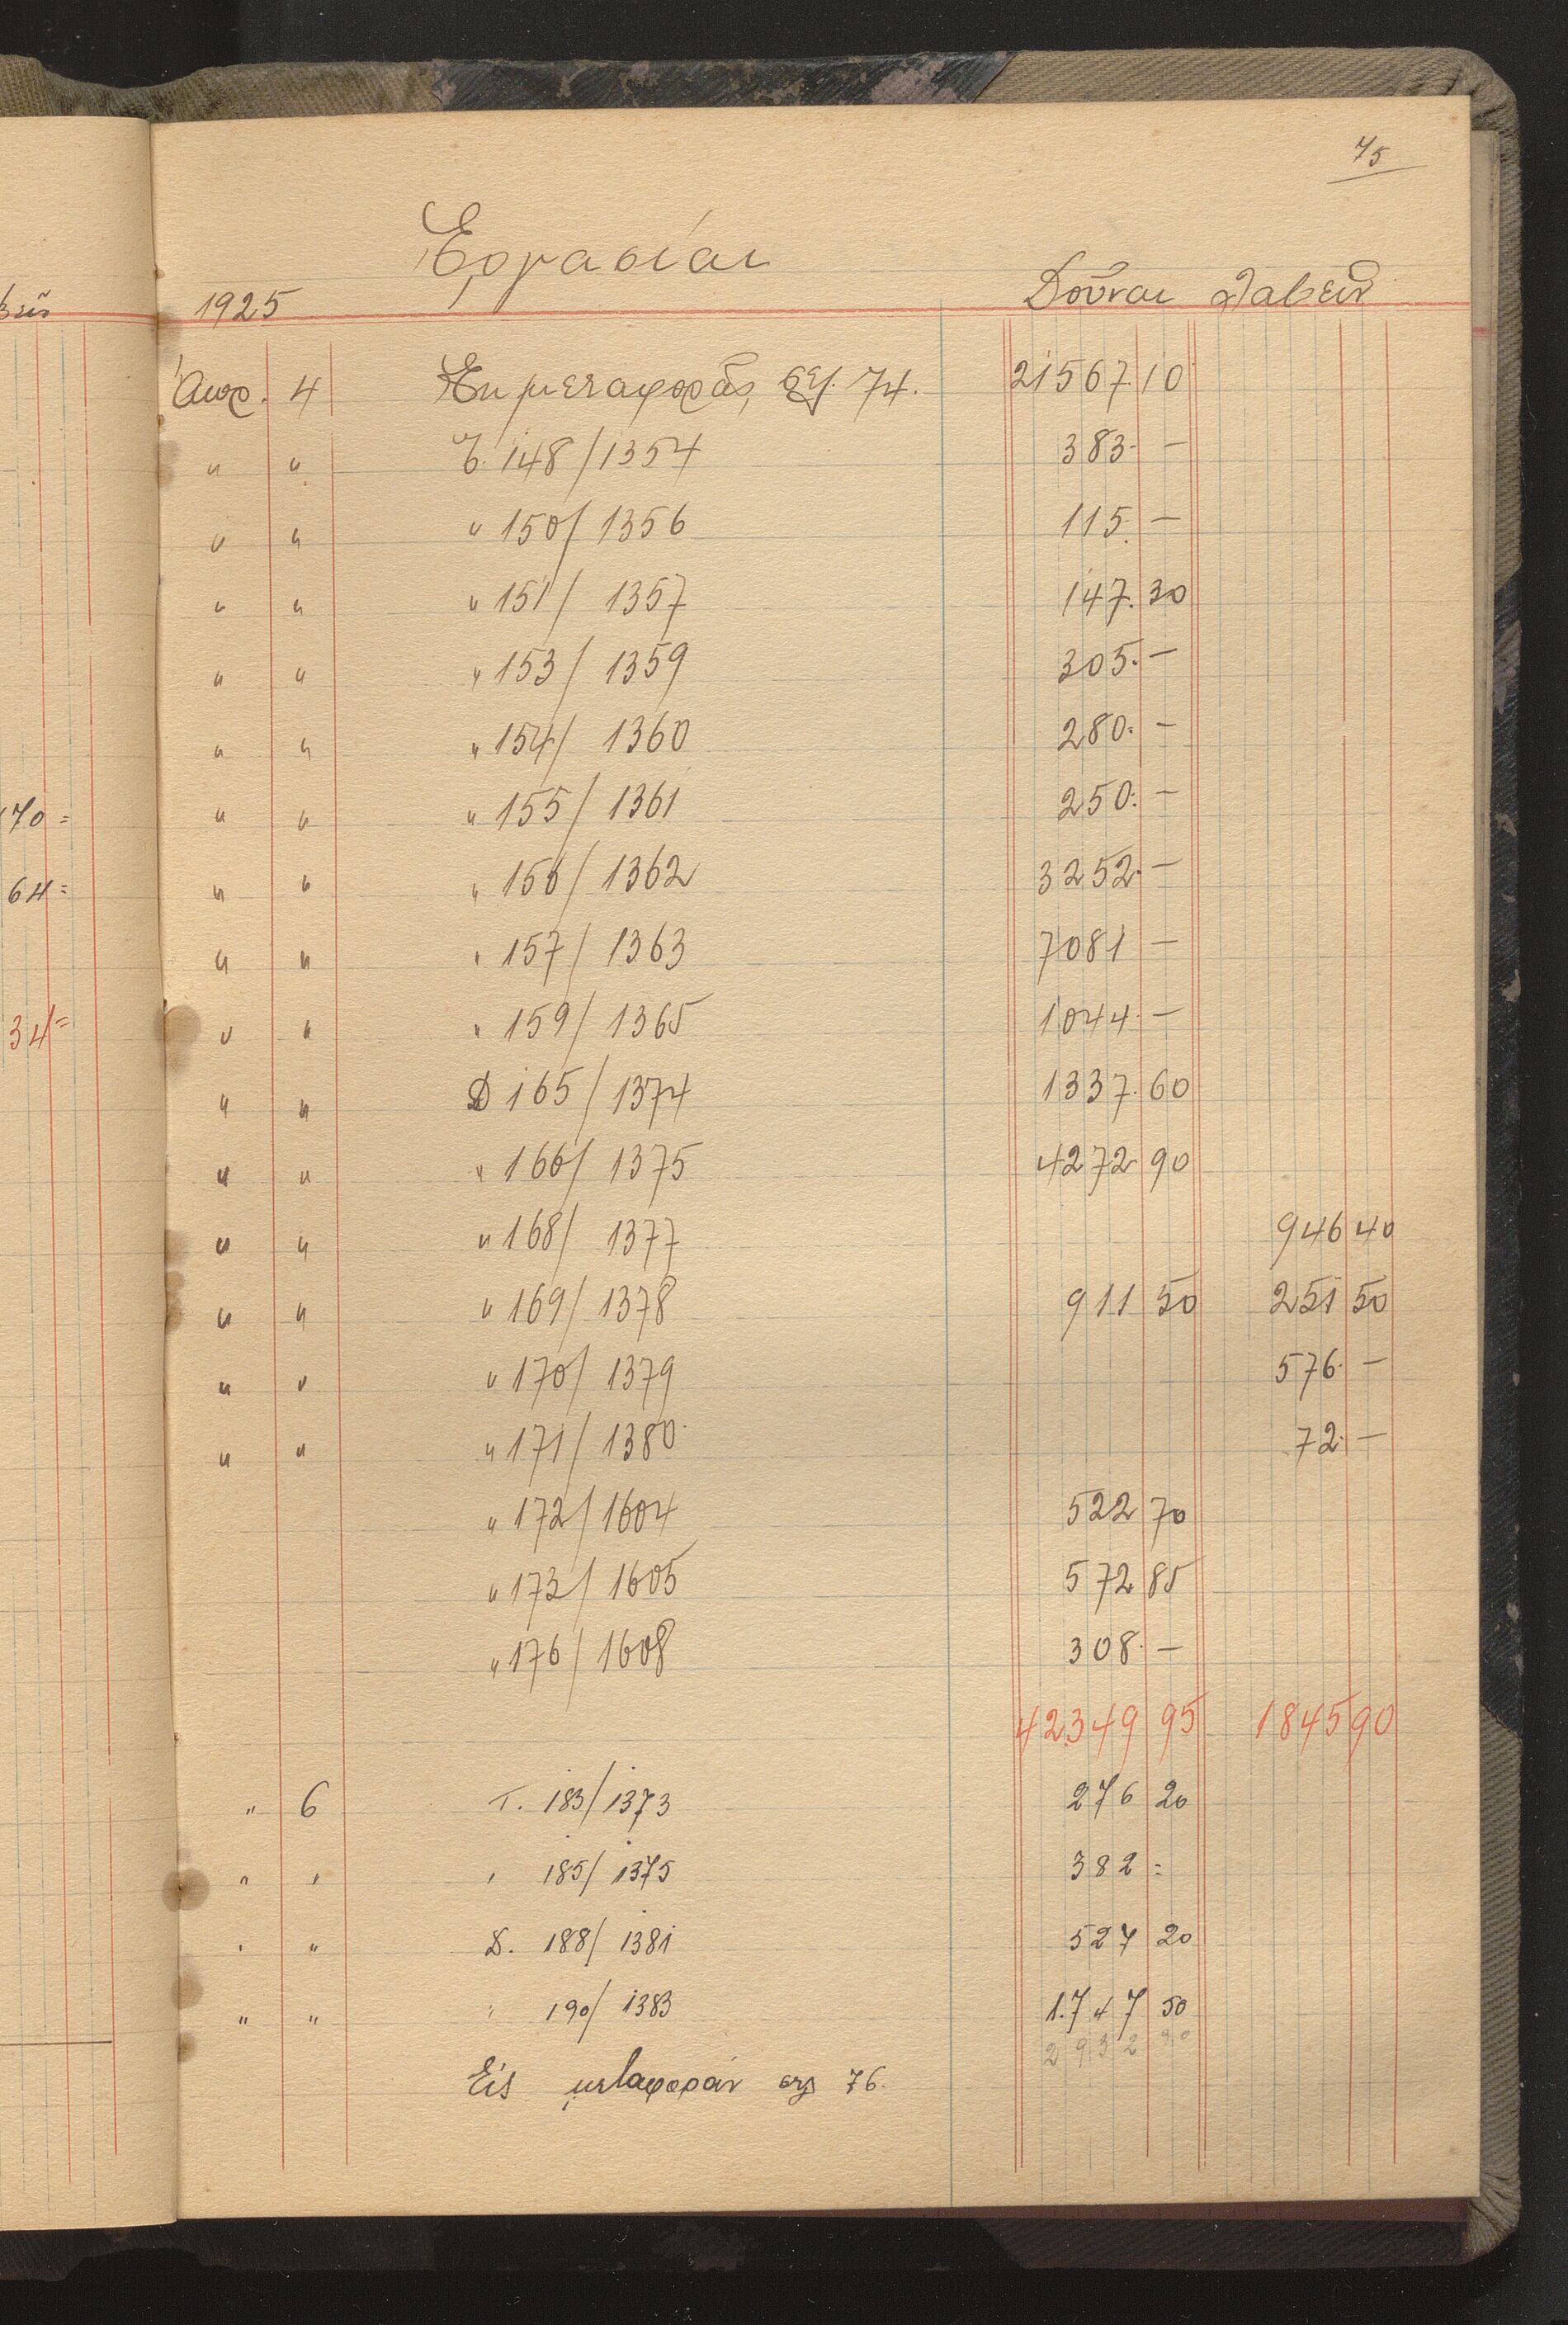 75
Ἐργασίαι
1925 Δοῦναι Λαβεῖν
Ἀπρ. 4 Ἐκ μεταφορᾶς σελ. 74. 21567.10
" " 148/1354 383.—
" " " 150/1356 115.—
" " " 151/1357 147.30
" " " 153/1359 305.—
" " " 154/1360 280.—
" " " 155/1361 250.—
" " " 156/1362 3252.—
" " " 157/1363 7081 —
" " " 159/1365 1044.—
" " D 165/1374 1337.60
" " " 166/1375 4272 90
" " " 168/1377 946 40
" " " 169/1378 911 50 251 50
" " " 170/1379 576.—
" " " 171/1380 72.—
" 172/1604 522 70
" 173/1605 572 85
" 176/1608 308.—
42349 95 1845 90
" 6 T. 183/1373 276 20
" " " 185/1375 382 =
" " D. 188/1381 527 20
" " " 190/1383 1.747 50
2932 90
Εἰς μεταφορὰν σελ 76.
70 =
64 =
34 =